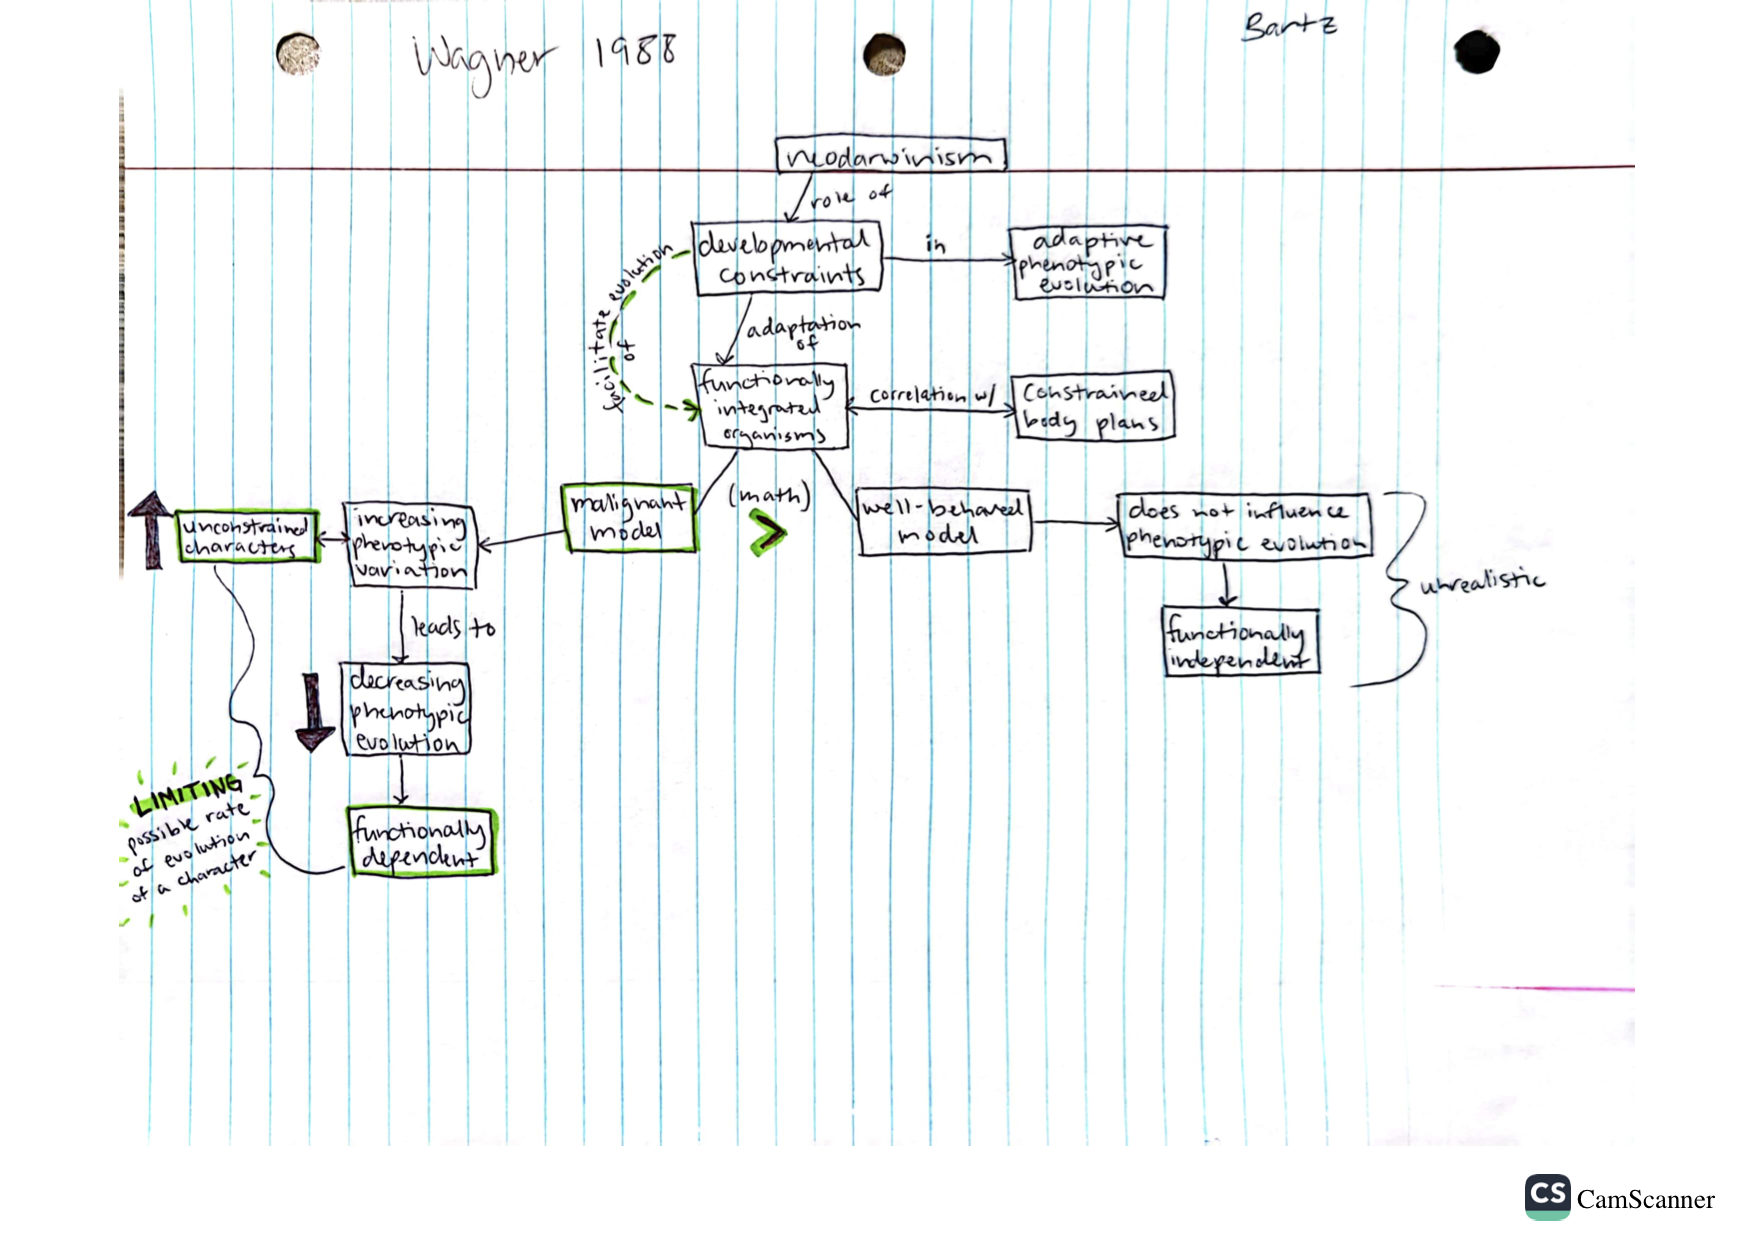 Wagner 1988
Bartz
neodarwinism
role of
developmental
constraints
in
adaptive
phenotypic
evolution
facilitate evolution
of
adaptation
of
functionally
integrated
organisms
correlation w/
constrained
body plans
malignant
model
(math)
>
well-behaved
model
does not influence
phenotypic evolution
functionally
independent
unrealistic
unconstrained
characters
increasing
phenotypic
variation
leads to
decreasing
phenotypic
evolution
functionally
dependent
LIMITING
possible rate
of evolution
of a character
CS CamScanner